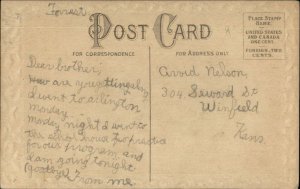 Forrest
POST CARD
FOR CORRESPONDENCE
FOR ADDRESS ONLY
PLACE STAMP
HERE
UNITED STATES
AND CANADA
ONE CENT.
FOREIGN, TWO
CENTS
Dear brother,
How are you
I went to arlington
monday.
Monday night I went to
the other School to practice
for our program, and
I am going tonight
Goodbye From me
Arvid Nelson,
304 Seward St
Winfield
Kans.